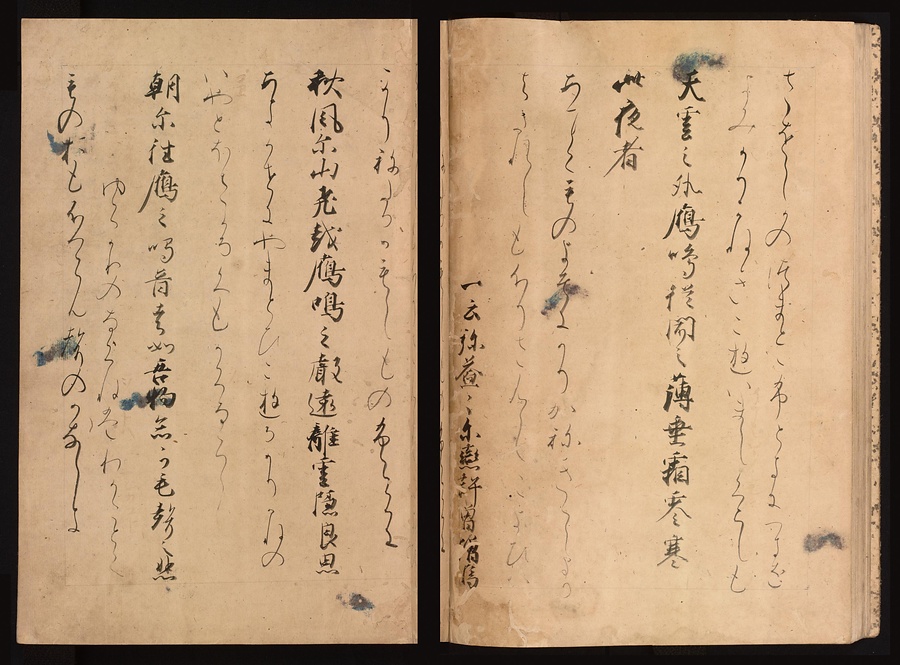 さをしかのつまとふときにつきを
よみかりかねきこゆいましくらしも
天雲之外鴈鳴従聞之薄垂霜零寒
此夜者
あまくものよそにかりかねきゝしより
はたれしもふりさむしこのよひは
一云弥益ゝ尓戀許曽増焉
かりねたるかもしものふらくに
秋風尓山飛越鴈鳴之聲遠離雲隠良思
あきかせにやまとひこゆるかりかねの
いやとほさかるくもかくるらし
朝尓徃鴈之鳴音者如吾物念可毛聲之悲
ゆくかりのなくねはわかことく
ものおもふらん聲のかなしき